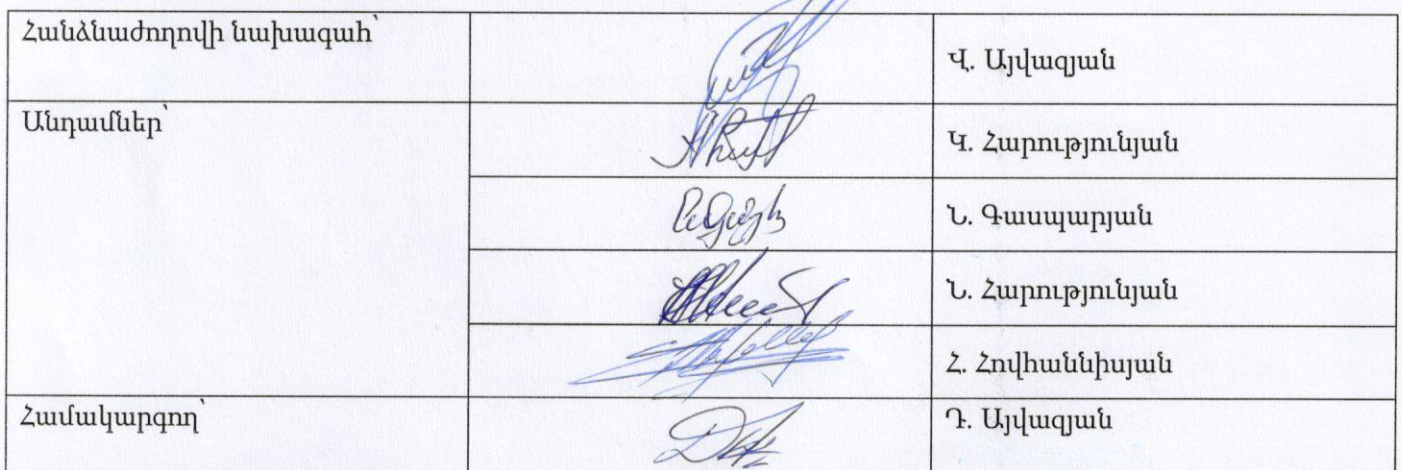 Հանձնաժողովի նախագահ՝
Վ. Այվազյան
Անդամներ՝
Կ. Հարությունյան
Ն. Գասպարյան
Ն. Հարությունյան
Հ. Հովհաննիսյան
Համակարգող՝
Դ. Այվազյան